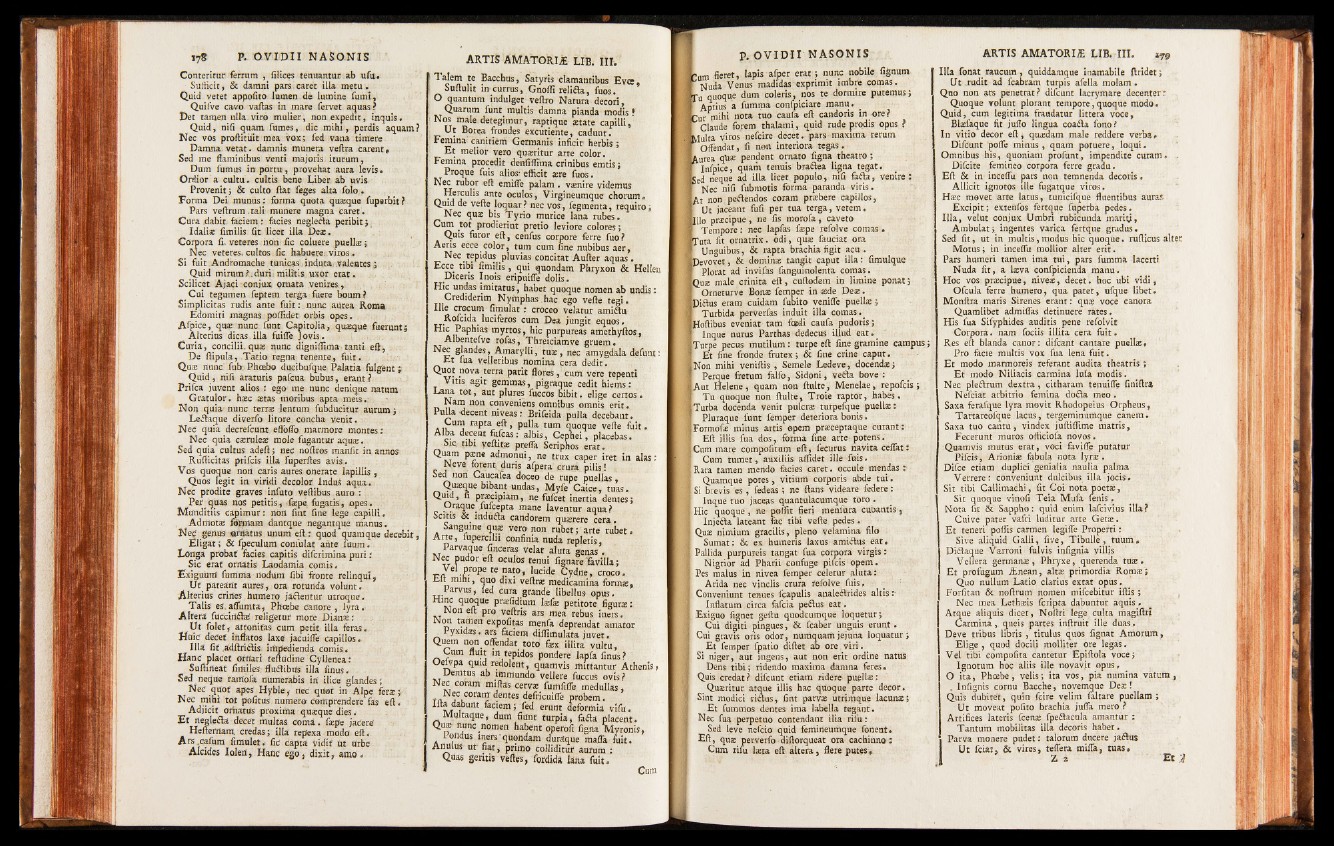 178 P. OVIDII NASONIS
Conteritur ferrum, silices tenuantur ab usu.
Sufficit, & damni pars caret illa metu.
Quid vetet apposito lumen de lumine sumi,
Quisve cavo vastas in mare servet aquas?
Det tamen ulla viro mulier, non expedit, inquis.
Quid, nisi quam sumes, dic mihi, perdis aquam?
Nec vos prostituit mea vox; sed vana timere
Damna vetat. damnis munera vestra carent.
Sed me flaminibus venti majoris iturum,
Dum sumus in portu, provehat aura levis.
Ordior a cultu. cultis bene Liber ab uvis
Provenit; & culto stat seges alta solo.
Forma Dei munus: forma quota quæque superbit?
Pars vestrum tali munere magna caret.
Cura dabit faciem: facies neglecta peribit;
Idaliæ similis sit licet illa Deæ.
Corpora si veteres non sic coluere puellæ;
Nec veteres cultos sic habuere viros.
Si fuit Andromache tunicas induta valentes;
Quid mirum? duri militis uxor erat.
Scilicet Ajaci conjux ornata venires,
Cui tegumen septem terga fuere boum?
Simplicitas rudis ante fuit: nunc aurea Roma
Edomiti magnas possidet orbis opes.
Aspice, quæ nunc sunt Capitolia, quæque fuerunt;
Alterius dicas illa fuisse Jovis.
Curia, concilii quæ nunc dignissima tanti est,
De stipula, Tatio regna tenente, fuit.
Quæ nunc sub Phœbo ducibusque Palatia fulgent;
Quid, nisi araturis pascua bubus, erant?
Prisca juvent alios: ego me nunc denique natum
Gratulor. hæc ætas moribus apta meis.
Non quia nunc terræ lentum subducitur aurum;
Lectaque diverso litore concha venit.
Nec quia decrescunt effosso marmore montes:
Nec quia cæruleæ mole fugantur aquæ.
Sed quia cultus adest; nec nostros mansit in annos
Rusticitas priscis illa superstes avis.
Vos quoque non caris aures onerate lapillis,
Quos legit in viridi decolor Indus aqua.
Nec prodite graves insuto vestibus auro:
Per quas nos petitis, sæpe fugatis, opes.
Munditiis capimur: non sint sine lege capilli.
Admotæ formam dantque negantque manus.
Nec genus ornatus unum est: quod quamque decebit,
Eligat; & speculum consulat ante suum.
Longa probat facies capitis discrimina puri:
Sic erat ornatis Laodamia comis.
Exiguum summa nodum sibi fronte relinqui,
Ut pareant aures, ora rotunda volunt.
Alterius crines humero jactentur utroque.
Talis es, assumta, Phœbe canore, lyra.
Altera succinctæ religetur more Dianæ:
Ut solet, attonitas cum petit illa feras.
Huic decet inflatos laxe jacuisse capillos.
Illa sit adstrictis impedienda comis.
Hanc placet ornari testudine Cyllenea:
Sustineat similes fluctibus illa sinus.
Sed neque ramosa numerabis in ilice glandes;
Nec quot apes Hyble, nec quot in Alpe feræ;
Nec mihi tot positus numero comprendere fas est.
Adjicit ornatus proxima quæque dies.
Et neglecta decet multas coma. sæpe jacere
Hesternam credas; illa repexa modo est.
Ars casum simulet. sic capta vidit ut urbe
Alcides Iolen, Hanc ego, dixit, amo.
ARTIS AMATORIÆ LIB. III.
Talem te Bacchus, Satyris clamantibus Evœ,
Sustulit in currus, Gnossi relicta, suos.
O quantum indulget vestro Natura decori,
Quarum sunt multis damna pianda modis!
Nos male detegimur, raptique ætate capilli,
Ut Borea frondes excutiente, cadunt.
Femina canitiem Germanis inficit herbis;
Et melior vero quæritur arte color.
Femina procedit densissima crinibus emtis;
Proque suis alios efficit ære suos.
Nec rubor est emisse palam. vænire videmus
Herculis ante oculos, Virgineumque chorum.
Quid de veste loquar? nec vos, segmenta, requiro;
Nec quæ bis Tyrio murice lana rubes.
Cum tot prodierint pretio leviore colores;
Quis furor est, census corpore ferre suo?
Aeris ecce color, tum cum sine nubibus aer,
Nec tepidus pluvias concitat Auster aquas.
Ecce tibi similis, qui quondam Phryxon & Hellen
Diceris Inois eripuisse dolis.
Hic undas imitatus, habet quoque nomen ab undis:
Crediderim Nymphas hac ego veste tegi.
Ille crocum simulat: croceo velatur amictu
Roscida luciferos cum Dea jungit equos.
Hic Paphias myrtos, hic purpureas amethystos,
Albentesve rosas, Threiciamve gruem.
Nec glandes, Amarylli, tuæ, nec amygdala desunt:
Et sua velleribus nomina cera dedit.
Quot nova terra parit flores, cum vere tepenti
Vitis agit gemmas, pigraque cedit hiems:
Lana tot, aut plures succos bibit. elige certos.
Nam non conveniens omnibus omnis erit.
Pulla decent niveas: Briseida pulla decebant.
Cum rapta est, pulla tum quoque veste fuit.
Alba decent fuscas: albis, Cephei, placebas.
Sic tibi vestitæ pressa Seriphos erat.
Quam pæne admonui, ne trux caper iret in alas:
Neve forent duris aspera crura pilis!
Sed non Caucasea doceo de rupe puellas,
Quæque bibant undas, Myse Caice, tuas.
Quid, si præcipiam, ne fuscet inertia dentes;
Oraque suscepta mane laventur aqua?
Scitis & inducta candorem quærere cera.
Sanguine quæ vero non rubet; arte rubet.
Arte, supercilii confinia nuda repletis,
Parvaque sinceras velat aluta genas.
Nec pudor est oculos tenui signare favilla;
Vel prope te nato, lucide Cydne, croco.
Est mihi, quo dixi vestræ medicamina formæ,
Parvus, sed cura grande libellus opus.
Hinc quoque præsidium læsæ petitote figuræ:
Non est pro vestris ars mea rebus iners.
Non tamen expositas mensa deprendat amator
Pyxidas. ars faciem dissimulata juvet.
Quem non offendat toto fæx illita vultu,
Cum fluit in tepidos pondere lapsa sinus?
Oesypa quid redolent, quamvis mittantur Athenis,
Demtus ab immundo vellere succus ovis?
Nec coram mistas cervæ sumsisse medullas,
Nec coram dentes defricuisse probem.
Ista dabunt faciem; sed erunt deformia visu.
Multaque, dum fiunt turpia, facta placent.
Quæ nunc nomen habent operosi signa Myronis,
Pondus iners quondam duraque massa fuit.
Anulus ut fiat, primo colliditur aurum:
Quas geritis vestes, sordida lana fuit.
Cum
P. OVIDII NASONIS
Cum fieret, lapis asper erat; nunc nobile signum
Nuda Venus madidas exprimit imbre comas.
Tu quoque dum coleris, nos te dormire putemus;
Aptius a summa conspiciare manu.
Cur mihi nota tuo causa est candoris in ore?
Claude forem thalami, quid rude prodis opus?
Multa viros nescire decet. pars maxima rerum
Offendat, si non interiora tegas.
Aurea quæ pendent ornato signa theatro;
Inspice, quam tenuis bractea ligna tegat.
Sed neque ad illa licet populo, nisi facta, venire:
Nec nisi submotis forma paranda viris.
At non pectendos coram præbere capillos,
Ut jaceant fusi per tua terga, vetem.
Illo præcipue, ne sis morosa, caveto
Tempore: nec lapsas sæpe resolve comas.
Tuta sit ornatrix. odi, quæ sauciat ora
Unguibus, & rapta brachia figit acu.
Devovet, & dominæ tangit caput illa: simulque
Plorat ad invisas sanguinolenta comas.
Quæ male crinita est, custodem in limine ponat;
Orneturve Bonæ semper in æde Deæ.
Dictus eram cuidam subito venisse puellæ;
Turbida perversas induit illa comas.
Hostibus eveniat tam fœdi causa pudoris;
Inque nurus Parthas dedecus illud eat.
Turpe pecus mutilum: turpe est sine gramine campus;
Et sine fronde frutex; & sine crine caput.
Non mihi venistis, Semele Ledeve, docendæ;
Perque fretum falso, Sidoni, vecta bove:
Aut Helene, quam non stulte, Menelae, reposcis;
Tu quoque non stulte, Troie raptor, habes.
Turba docenda venit pulcræ turpesque puellæ:
Pluraque sunt semper deteriora bonis.
Formosæ minus artis opem præceptaque curant:
Est illis sua dos, forma sine arte potens.
Cum mare compositum est, securus navita cessat:
Cum tumet, auxiliis assidet ille suis.
Rara tamen mendo facies caret. occule mendas:
Quamque potes, vitium corporis abde tui.
Si brevis es, sedeas: ne stans videare sedere:
Inque tuo jaceas quantulacumque toro.
Hic quoque, ne possit fieri mensura cubantis,
Injecta lateant fac tibi veste pedes.
Quæ nimium gracilis, pleno velamina filo
Sumat: & ex humeris laxus amictus eat.
Pallida purpureis tangat sua corpora virgis:
Nigrior ad Pharii confuge piscis opem.
Pes malus in nivea semper celetur aluta:
Arida nec vinclis crura resolve suis.
Conveniunt tenues scapulis analectrides altis:
Inflatum circa fascia pectus eat.
Exiguo signet gestu quodcumque loquetur;
Cui digiti pingues, & scaber unguis erunt.
Cui gravis oris odor, numquam jejuna loquatur;
Et semper spatio distet ab ore viri.
Si niger, aut ingens, aut non erit ordine natus
Dens tibi; ridendo maxima damna feres.
Quis credat? discunt etiam ridere puellæ:
Quæritur atque illis hac quoque parte decor.
Sint modici rictus, sint parvæ utrimque lacunæ;
Et summos dentes ima labella tegant.
Nec sua perpetuo contendant ilia risu:
Sed leve nescio quid femineumque sonent.
Est, quæ perverso distorqueat ora cachinno:
Cum risu læta est altera, flere putes.
ARTIS AMATORIÆ LIB. III. 179
Illa sonat raucum, quiddamque inamabile stridet;
Ut rudit ad scabram turpis asella molam.
Quo non ars penetrat? discunt lacrymare decenter:
Quoque volunt plorant tempore, quoque modo.
Quid, cum legitima fraudatur littera voce,
Blæsaque fit jusso lingua coacta sono?
In vitio decor est, quædam male reddere verba.
Discunt posse minus, quam potuere, loqui.
Omnibus his, quoniam prosunt, impendite curam.
Discite femineo corpora ferre gradu.
Est & in incessu pars non temnenda decoris.
Allicit ignotos ille fugatque viros.
Hæc movet arte latus, tunicisque fluentibus auras
Excipit; extensos fertque superba pedes.
Illa, velut conjux Umbri rubicunda mariti,
Ambulat; ingentes varica fertque gradus.
Sed sit, ut in multis, modus hic quoque. rusticus alter
Motus; in incessu mollior alter erit.
Pars humeri tamen ima tui, pars summa lacerti
Nuda sit, a læva conspicienda manu.
Hoc vos præcipue, niveæ, decet. hoc ubi vidi,
Oscula ferre humero, qua patet, usque libet.
Monstra maris Sirenes erant: quæ voce canora
Quamlibet admissas detinuere rates.
His sua Sisyphides auditis pene resolvit
Corpora. nam sociis illita cera fuit.
Res est blanda canor: discant cantare puellæ.
Pro facie multis vox sua lena fuit.
Et modo marmoreis referant audita theatris;
Et modo Niliacis carmina lusa modis.
Nec plectrum dextra, citharam tenuisse sinistra
Nesciat arbitrio femina docta meo.
Saxa ferasque lyra movit Rhodopeius Orpheus,
Tartareosque lacus, tergeminumque canem.
Saxa tuo cantu, vindex justissime matris,
Fecerunt muros officiosa novos.
Quamvis mutus erat, voci favisse putatur
Piscis, Arioniæ fabula nota lyræ.
Disce etiam duplici genialia naulia palma
Verrere: conveniunt dulcibus illa jocis.
Sit tibi Callimachi, sit Coi nota poetæ,
Sit quoque vinosi Teia Musa senis.
Nota sit & Sappho: quid enim lascivius illa?
Cuive pater vafri luditur arte Getæ.
Et teneri possis carmen legisse Properti:
Sive aliquid Galli, sive, Tibulle, tuum.
Dictaque Varroni fulvis insignia villis
Vellera germanæ, Phryxe, querenda tuæ.
Et profugum Ænean, altæ primordia Romæ;
Quo nullum Latio clarius extat opus.
Forsitan & nostrum nomen miscebitur istis;
Nec mea Lethæis scripta dabuntur aquis.
Atque aliquis dicet, Nostri lege culta magistri
Carmina, queis partes instruit ille duas.
Deve tribus libris, titulus quos signat Amorum,
Elige, quod docili molliter ore legas.
Vel tibi composita cantetur Epistola voce;
Ignotum hoc aliis ille novavit opus.
O ita, Phœbe, velis; ita vos, pia numina vatum,
Insignis cornu Bacche, novemque Deæ!
Quis dubitet, quin scire velim saltare puellam;
Ut moveat posito brachia jussa mero?
Artifices lateris scenæ spectacula amantur:
Tantum mobilitas illa decoris habet.
Parva monere pudet: talorum ducere jactus
Ut sciat, & vires, tessera missa, tuas.
Z 2 Et